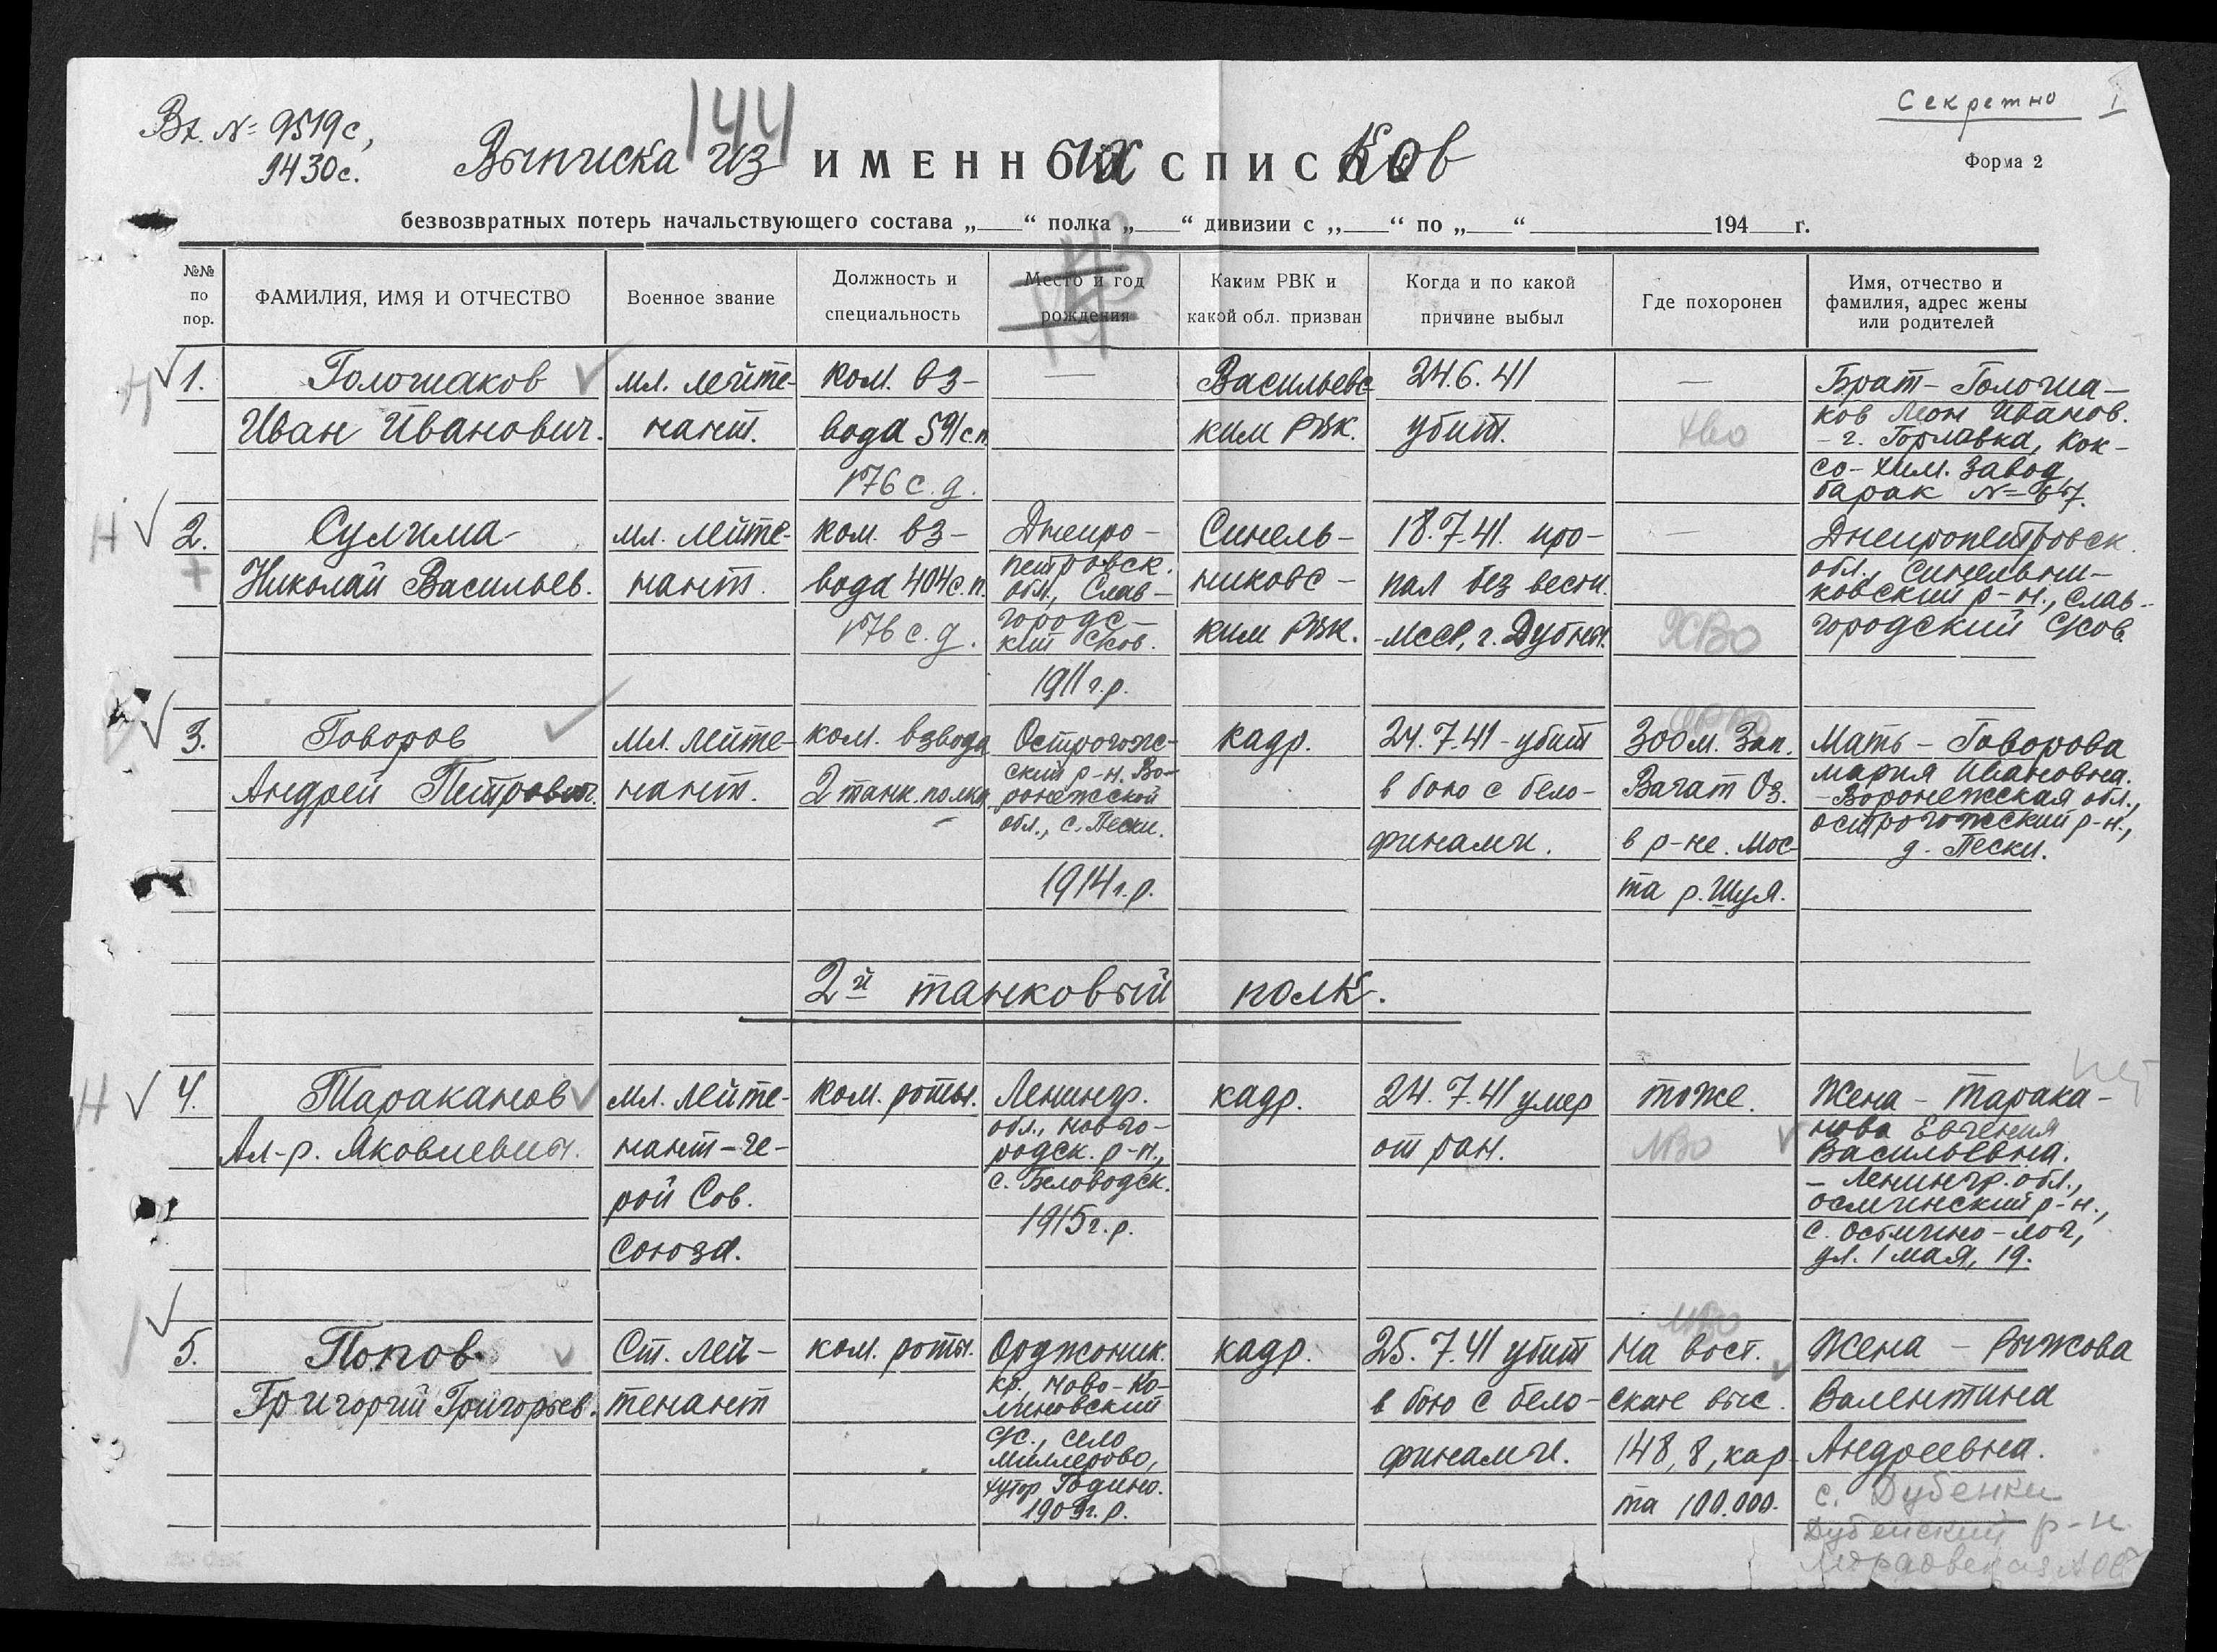 Секретно I
Вх. № 9519с,
9430с.
144
Выписка из ИМЕННЫХ СПИСКОВ
Форма 2
безвозвратных потерь начальствующего состава „ “ полка „ “ дивизии с „ “ по „ “ 194 г.
№№ по пор.
ФАМИЛИЯ, ИМЯ И ОТЧЕСТВО
Военное звание
Должность и специальность
Место и год рождения
Каким РВК и какой обл. призван
Когда и по какой причине выбыл
Где похоронен
Имя, отчество и фамилия, адрес жены или родителей
1.
Голошаков
Иван Иванович.
мл. лейте-
нант.
ком. вз-
вода 591с.п.
176 с.д.
—
Васильевс-
ким РВК.
24.6.41
убит.
—
ХВО
Брат – Голоша-
ков Леон Иванов.
– г. Горлавка, Кок-
со-хим. завод
барак №
Н
2.
Сулима
Николай Васильев.
мл. лейте-
нант.
ком. вз-
вода 404с.п.
176 с.д.
Днепро-
петровск.
обл., Слав-
городс-
кий с/сов.
1911 г.р.
Синель-
никовс-
ким РВК.
18.7.41. про-
пал без вести.
-МССР, г. Дубны.
—
ХВО
Днепропетровск.
обл., Синельни-
ковский р-н., Слав-
городский с/сов.
3.
Говоров
Андрей Петрович.
Мл. лейте-
нант.
ком. взвода
2 танк. полка
Острогожс-
ский р-н. Во-
ронежской
обл., с. Пески.
1914 г.р.
кадр.
24.7.41 - убит
в бою с бело-
финами.
300 м. Зап.
Вагат Оз.
в р-не. Мос-
та р. Шуя.
Мать – Говорова
Мария Ивановна.
– Воронежская обл.,
острогожский р-н.,
д. Пески.
2й танковый полк.
Н
4.
Тараканов
Ал-р. Яковлевич.
Мл. лейте-
нант – ге-
рой Сов.
Союза.
ком. роты.
Ленингр.
обл., Новго-
родск. р-н.,
с. Беловодск.
1915 г.р.
кадр.
24.7.41 умер
от ран.
тоже.
ЛВО
Жена – Тарака-
нова Евгения
Васильевна.
– Ленингр. обл.,
осьминский р-н.,
с. Осьмино-лог,
ул. 1 мая, 19.
5.
Попов
Григорий Григорьев.
Ст. лей-
тенант
ком. роты.
Орджоник.
кр., Ново-Ко-
линовский
с/с., село
Миллерово,
хутор Родино.
1909г.р.
кадр.
25.7.41 убит
в бою с бело-
финами.
МВО
На вост.
скате выс.
148,8, кар-
та 100.000.
Жена – Рыжова
Валентина
Андреевна.
с. Дубенки
Дубенский р-н
Мордовская АССР